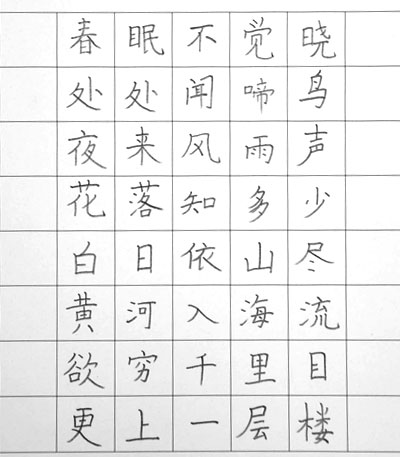 春眠不觉晓
处处闻啼鸟
夜来风雨声
花落知多少
白日依山尽
黄河入海流
欲穷千里目
更上一层楼